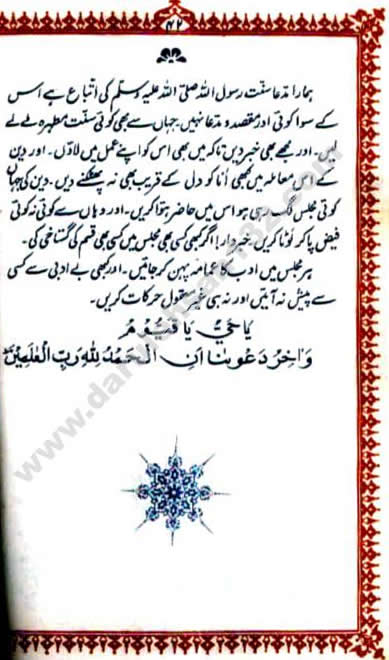 ۴۲
ہمارا مدعا سنت رسول اللہ صلی اللہ علیہ وسلم کی اتباع ہے اس
کے سوا کوئی اور مقصد و مدعا نہیں۔ جہاں سے بھی کوئی سنت مطہرہ ملے لے
لیں۔ اور مجھے بھی خبر دیں تاکہ میں بھی اس کو اپنے عمل میں لاؤں۔ اور دین
کے اس معاملہ میں کبھی اَنا کو دل کے قریب بھی نہ پھٹکنے دیں۔ دین کی جہاں
کوئی مجلس لگ رہی ہو اس میں حاضر ہوا کریں۔ اور وہاں سے کوئی نہ کوئی
فیض پا کر لوٹا کریں۔ خبردار! اگر کبھی کسی بھی مجلس میں کسی بھی قسم کی گستاخی کی۔
ہر مجلس میں ادب کا عمامہ پہن کر جائیں۔ اور کبھی بے ادبی سے کسی
سے پیش نہ آئیں اور نہ ہی غیر معقول حرکات کریں۔
یَا حَیُّ یَا قَیُّوْمُ
وَاٰخِرُ دَعْوٰنَا اَنِ الْحَمْدُ لِلّٰهِ رَبِّ الْعٰلَمِیْنَ